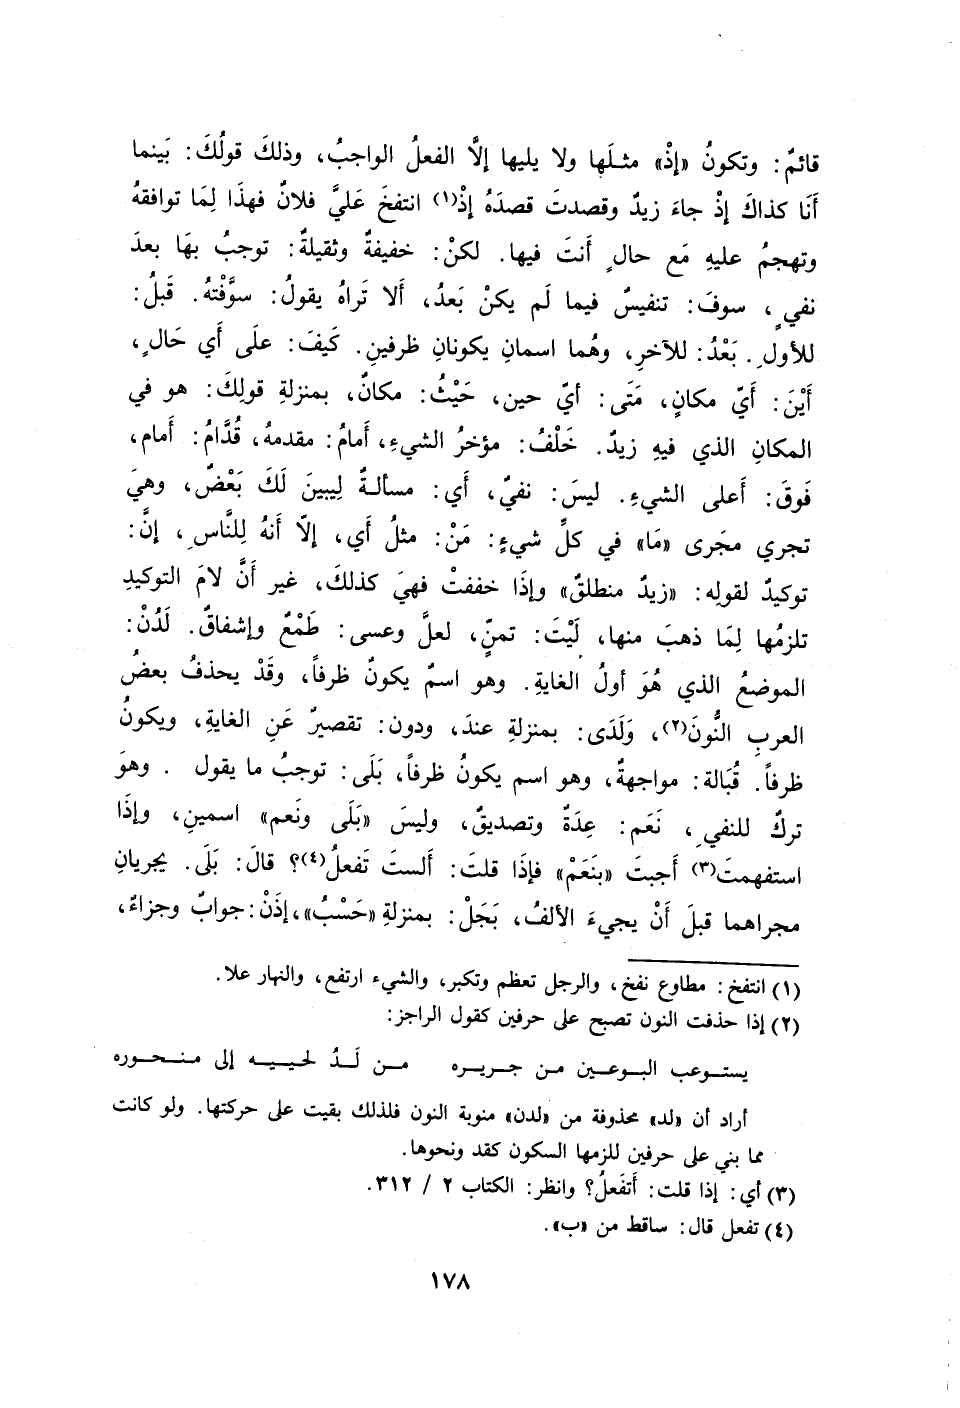 قائمٌ: وتكونُ «إذْ» مثلَها ولا يليها إلَّا الفعلُ الواجبُ، وذلكَ قولُكَ: بَينما
أَنَا كذاكَ إذْ جاءَ زيدٌ وقصدتَ قصدَهُ إذْ(١) انتفخَ عَليَّ فلانٌ فهذَا لِمَا توافقهُ
وتهجمُ عليهِ مَع حالٍ أَنتَ فيها. لكنْ: خفيفةٌ وثقيلةٌ: توجبُ بهَا بعدَ
نفيٍ، سوفَ: تنفيسٌ فيما لَم يكنْ بَعدُ، أَلا تَراهُ يقولُ: سوَّفْتهُ. قَبلُ:
للأولِ. بَعْدُ: للآخرِ، وهُما اسمانِ يكونانِ ظرفينِ. كَيفَ: علَى أَي حَالٍ،
أَيْنَ: أَيّ مكانٍ، مَتَى: أيّ حين، حَيْثُ: مكانٌ، بمنزلةِ قولِكَ: هو في
المكانِ الذي فيهِ زيدٌ. خَلْفُ: مؤخرُ الشيءِ، أَمامُ: مقدمهُ، قُدَّامُ: أَمام،
فَوقَ: أَعلى الشيءِ. ليسَ: نفيٌ، أَي: مسألةٌ لِيبينَ لَكَ بَعْضٌ، وهيَ
تجري مجَرى «مَا» في كلِّ شيءٍ: مَنْ: مثلُ أَي، إلّا أَنهُ لِلنَّاسِ، إنَّ:
توكيدٌ لقولِه: «زيدٌ منطلقٌ» وإذَا خففتْ فهيَ كذلكَ، غير أَنَّ لامَ التوكيدِ
تلزمُها لِمَا ذهبَ منها، لَيْتَ: تمنٍّ، لعلَّ وعسى: طَمْعٌ وإشفاقٌ. لَدُنْ:
الموضعُ الذي هُوَ أولُ الغايةِ. وهو اسمٌ يكونٌ ظرفاً، وقَدْ يحذفُ بعضُ
العربِ النُّونَ(٢)، وَلَدَى: بمنزلةِ عندَ، ودون: تقصيرٌ عَنِ الغايةِ، ويكونُ
ظرفاً. قُبَالة: مواجهةٌ، وهو اسم يكونُ ظرفاً، بَلَى: توجبُ ما يقول . وهوَ
تركٌ للنفيِ، نَعَم: عِدَةٌ وتصديقٌ، وليسَ «بَلَى ونَعم» اسمينِ، وإذَا
استفهمتَ(٣) أَجبتَ «بنَعَمْ» فإذَا قلتَ: أَلستَ تَفعلُ(٤)؟ قالَ: بَلَى. يجريانِ
مجراهما قبلَ أَنْ يجيءَ الألفُ، بَجَلْ: بمنزلةِ «حَسْبُ»، إذَنْ: جوابٌ وجزاءٌ،
(١) انتفخ: مطاوع نفخ، والرجل تعظم وتكبر، والشيء ارتفع، والنهار علا.
(٢) إذا حذفت النون تصبح على حرفين كقول الراجز:
يستوعب البوعين من جريره من لَدُ لحييه إلى منحوره
أراد أن «لد» محذوفة من «لدن» منوية النون فلذلك بقيت على حركتها. ولو كانت
مما بني على حرفين للزمها السكون كقد ونحوها.
(٣) أي: إذا قلت: أَتفَعلُ؟ وانظر: الكتاب ٢ / ٣١٢.
(٤) تفعل قال: ساقط من «ب».
١٧٨